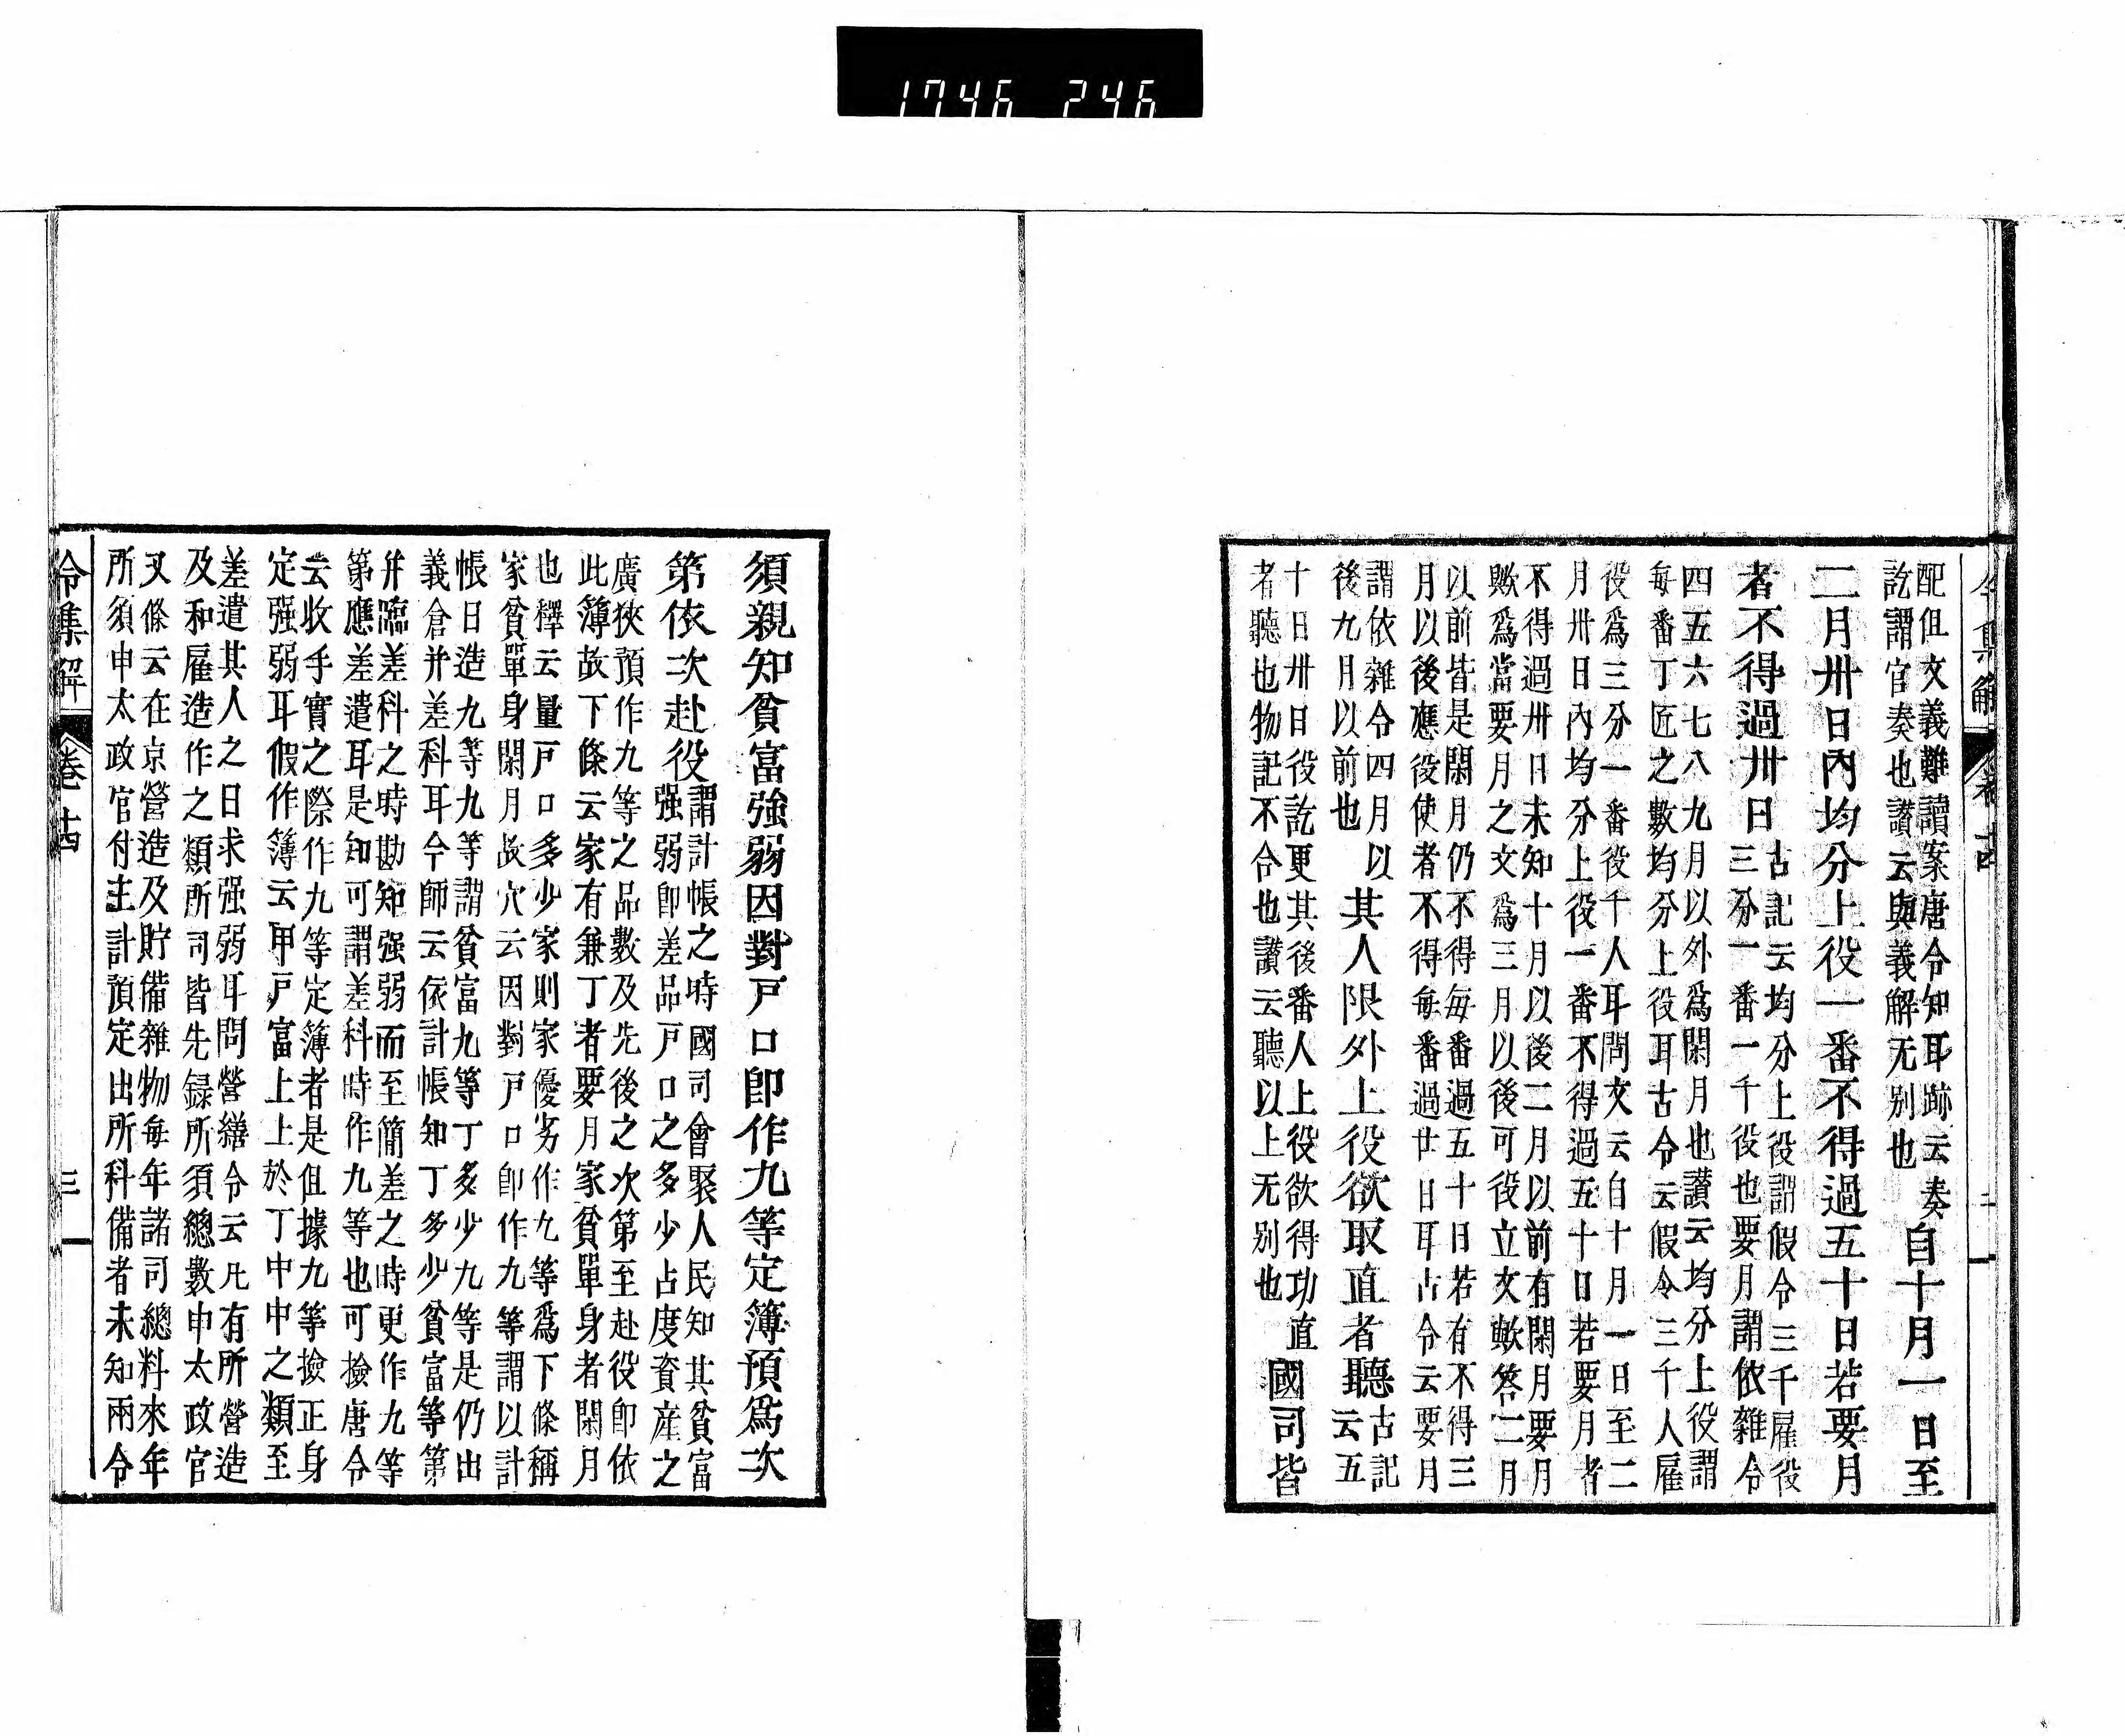 令集解 卷十四 二
配但文義難讀案唐令知耳跡云奏
訖謂官奏也讃云與義解无别也
自十月一日至
二月卅日内均分上役一番不得過五十日若要月
者不得過卅日
古記云均分上役謂假令三千雇役
三分一番一千役也要月謂依雜令
四五六七八九月以外爲閑月也讃云均分上役謂
每番丁匠之數均分上役耳古令云假令三千人雇
役爲三分一番役千人耳問文云自十月一日至二
月卅日内均分上役一番不得過五十日若要月者
不得過卅日未知十月以後二月以前有閑月要月
歟爲當要月之文爲三月以後可役立文歟答二月
以前皆是閑月仍不得每番過五十日若有不得三
月以後應役使者不得每番過廿日耳古令云要月
謂依雜令四月以
後九月以前也
其人限外上役欲取直者聽
古記
云五
十日卅日役訖更其後番人上役欲得功直
者聽也物記不合也讃云聽以上无别也
國司皆
須親知貧富強弱因對戸口卽作九等定簿預爲次
第依次赴役
謂計帳之時國司會聚人民知其貧富
强弱卽差品戸口之多少占度資産之
廣狹預作九等之品數及先後之次第至赴役卽依
此簿故下條云家有兼丁者要月家貧單身者閑月
也釋云量戸口多少家則家優劣作九等爲下條稱
家貧單身閑月故穴云因對戸口卽作九等謂以計
帳日造九等九等謂貧富九等丁多少九等是仍出
義倉并差科耳今師云依計帳知丁多少貧富等第
并臨差科之時勘知强弱而至簡差之時更作九等
第應差遣耳是知可謂差科時作九等也可撿唐令
云收手實之際作九等定簿者是但據九等撿正身
定强弱耳假作簿云甲戸富上上於丁中中之類至
差遣其人之日求强弱耳問營繕令云凡有所營造
及和雇造作之類所司皆先録所須總數申太政官
又條云在京營造及貯備雜物每年諸司總料來年
所須申太政官付主計預定出所科備者未知兩令
令集解 卷十四 三
1746 246